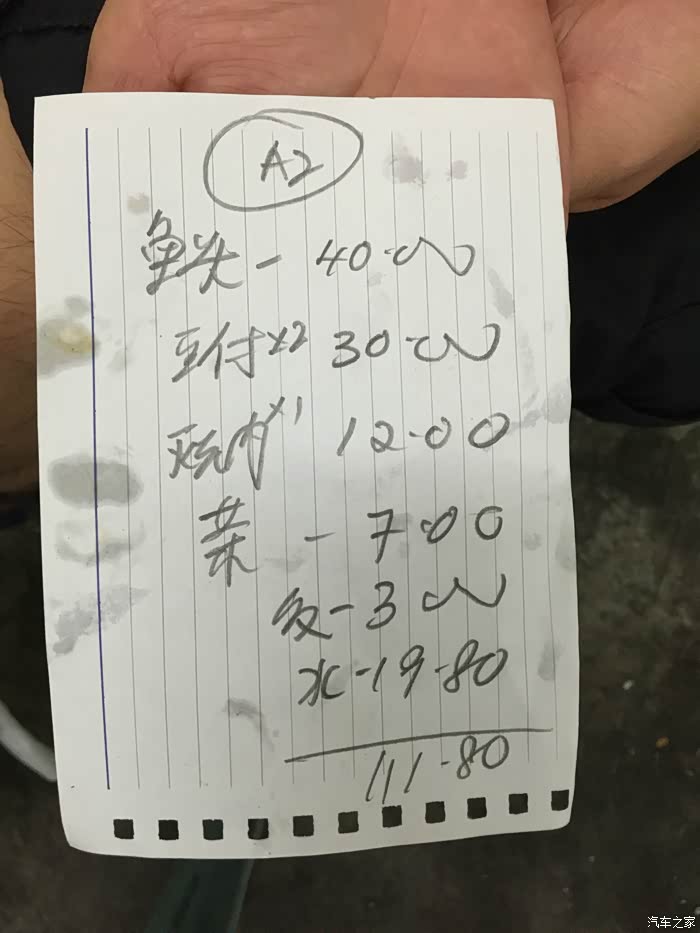 A2
鱼头 - 40.00
豆付x2 30.00
肉x1 12.00
菜 - 7.00
- 3.00
水 - 19.80
111.80
汽车之家